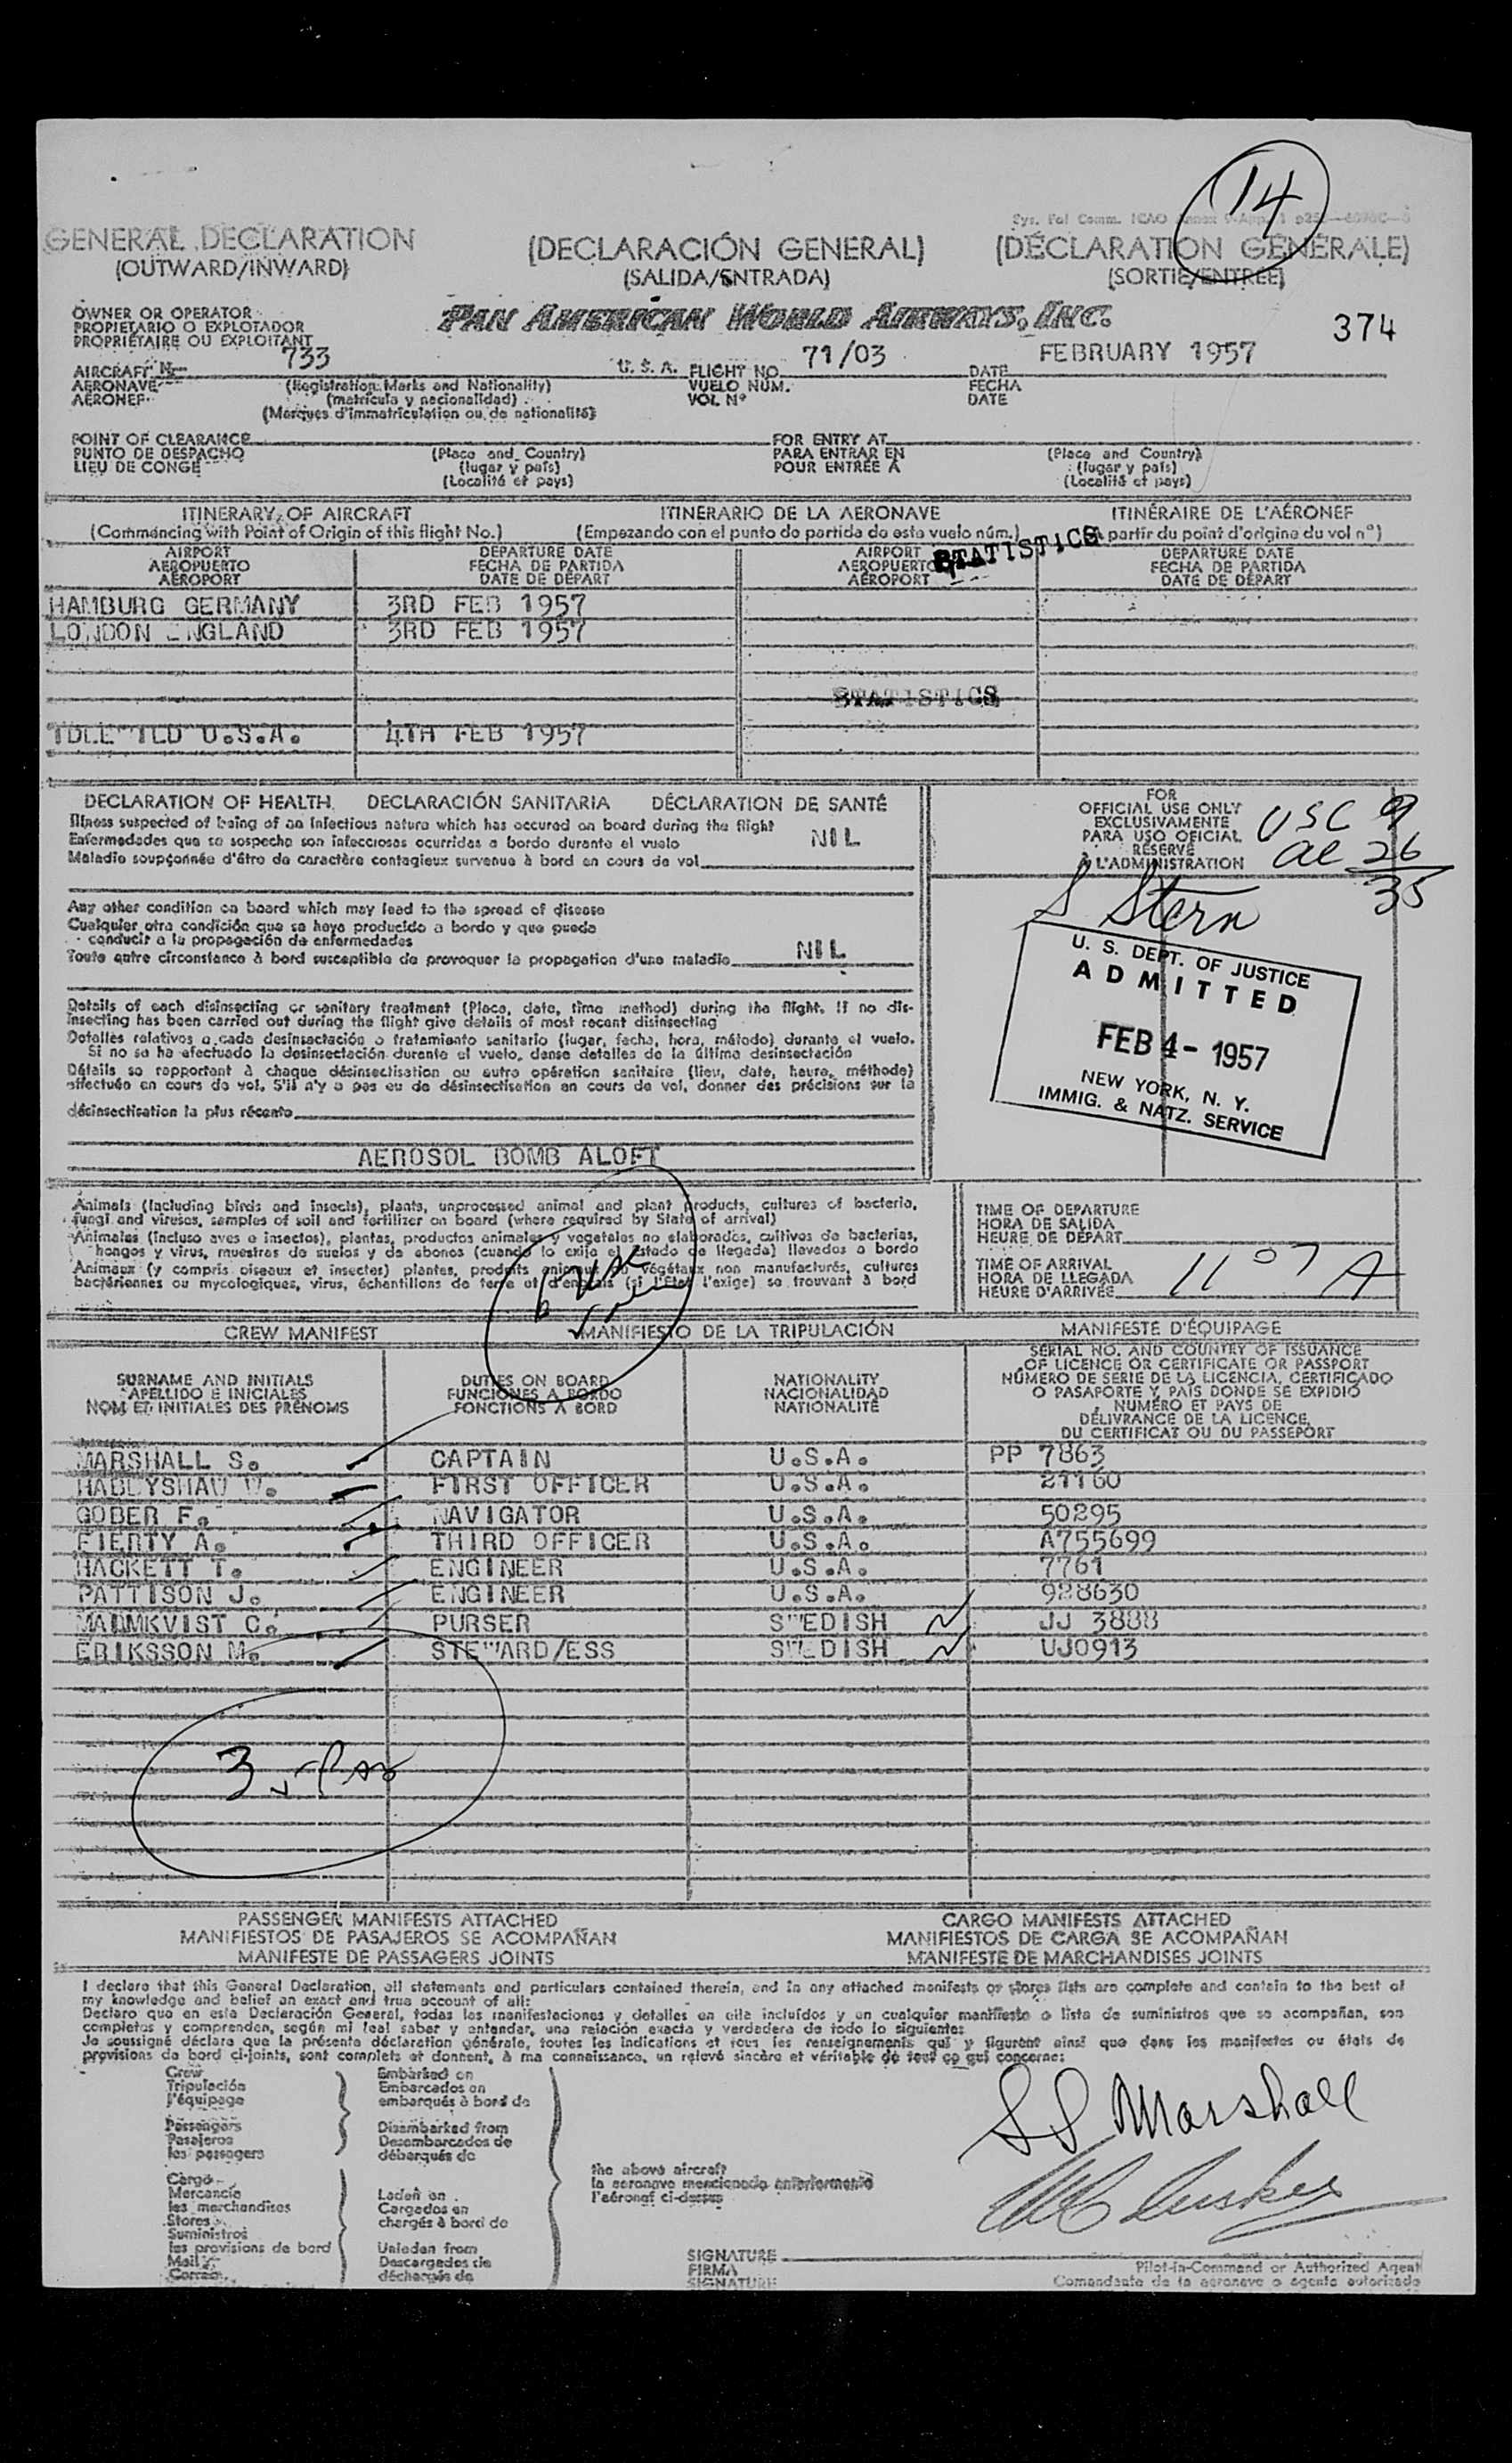 14
GENERAL DECLARATION
(OUTWARD/INWARD)
(DECLARACIÓN GENERAL)
(SALIDA/ENTRADA)
(DÉCLARATION GÉNÉRALE)
(SORTIE/ENTRÉE)
OWNER OR OPERATOR
PROPIETARIO O EXPLOTADOR
PROPRIÉTAIRE OU EXPLOITANT
PAN AMERICAN WORLD AIRWAYS, INC.
374
AIRCRAFT N 733 U.S.A. FLIGHT NO. 71/03 DATE FEBRUARY 1957
AERONAVE (Registration Marks and Nationality) VUELO NUM. FECHA
AÉRONEF (matrícula y nacionalidad) VOL Nº DATE
(Marques d'immatriculation ou de nationalité)
POINT OF CLEARANCE FOR ENTRY AT
PUNTO DE DESPACHO (Place and Country) PARA ENTRAR EN (Place and Country)
LIEU DE CONGÉ (lugar y país) POUR ENTRÉE À (lugar y país)
(Localité et pays) (Localité et pays)
ITINERARY OF AIRCRAFT ITINERARIO DE LA AERONAVE ITINÉRAIRE DE L'AÉRONEF
(Commencing with Point of Origin of this flight No.) (Empezando con el punto de partida de este vuelo núm.) partir du point d'origine du vol nº)
STATISTICS
AIRPORT DEPARTURE DATE AIRPORT DEPARTURE DATE
AEROPUERTO FECHA DE PARTIDA AEROPUERTO FECHA DE PARTIDA
AÉROPORT DATE DE DÉPART AÉROPORT DATE DE DÉPART
HAMBURG GERMANY 3RD FEB 1957
LONDON ENGLAND 3RD FEB 1957
STATISTICS
IDLEWILD U.S.A. 4TH FEB 1957
DECLARATION OF HEALTH DECLARACIÓN SANITARIA DÉCLARATION DE SANTÉ
Illness suspected of being of an infectious nature which has occured on board during the flight
Enfermedades que se sospecha son infecciosas ocurridas a bordo durante el vuelo NIL
Maladie soupçonnée d'être de caractère contagieux survenue à bord en cours de vol
Any other condition on board which may lead to the spread of disease
Cualquier otra condición que se haya producido a bordo y que pueda
conducir a la propagación de enfermedades
Toute autre circonstance à bord susceptible de provoquer la propagation d'une maladie NIL
Details of each disinsecting or sanitary treatment (Place, date, time method) during the flight. If no dis-
insecting has been carried out during the flight give details of most recent disinsecting
Detalles relativos a cada desinsectación o tratamiento sanitario (lugar, fecha, hora, método) durante el vuelo.
Si no se ha efectuado la desinsectación durante el vuelo, dense detalles de la última desinsectación
Détails se rapportant à chaque désinsectisation ou autre opération sanitaire (lieu, date, heure, méthode)
effectuée en cours de vol. S'il n'y a pas eu de désinsectisation en cours de vol, donner des précisions sur la
désinsectisation la plus récente
AEROSOL BOMB ALOFT
FOR
OFFICIAL USE ONLY
EXCLUSIVAMENTE
PARA USO OFICIAL
RÉSERVÉ
À L'ADMINISTRATION
USC 9
al 26
35
S Stern
U. S. DEPT. OF JUSTICE
ADMITTED
FEB 4 - 1957
NEW YORK, N. Y.
IMMIG. & NATZ. SERVICE
Animals (including birds and insects), plants, unprocessed animal and plant products, cultures of bacteria,
fungi and viruses, samples of soil and fertilizer on board (where required by State of arrival)
Animales (incluso aves e insectos), plantas, productos animales y vegetales no elaborados, cultivos de bacterias,
hongos y virus, muestras de suelos y de abonos (cuando lo exija el Estado de llegada) llevados a bordo
Animaux (y compris oiseaux et insectes) plantes, produits animaux ou végétaux non manufacturés, cultures
bactériennes ou mycologiques, virus, échantillons de terre et d'engrais (si l'Etat l'exige) se trouvant à bord
TIME OF DEPARTURE
HORA DE SALIDA
HEURE DE DÉPART
TIME OF ARRIVAL
HORA DE LLEGADA
HEURE D'ARRIVÉE 11 07 A
CREW MANIFEST MANIFIESTO DE LA TRIPULACIÓN MANIFESTE D'ÉQUIPAGE
SURNAME AND INITIALS
APELLIDO E INICIALES
NOM ET INITIALES DES PRÉNOMS
DUTIES ON BOARD
FUNCIONES A BORDO
FONCTIONS À BORD
NATIONALITY
NACIONALIDAD
NATIONALITÉ
SERIAL NO. AND COUNTRY OF ISSUANCE
OF LICENCE OR CERTIFICATE OR PASSPORT
NÚMERO DE SERIE DE LA LICENCIA, CERTIFICADO
O PASAPORTE Y PAÍS DONDE SE EXPIDIÓ
NUMÉRO ET PAYS DE
DÉLIVRANCE DE LA LICENCE,
DU CERTIFICAT OU DU PASSEPORT
MARSHALL S. CAPTAIN U.S.A. PP 7863
FIRST OFFICER U.S.A. 21160
GOBER F. NAVIGATOR U.S.A. 50295
FIERTY A. THIRD OFFICER U.S.A. A755699
HACKETT T. ENGINEER U.S.A. 7761
PATTISON J. ENGINEER U.S.A. 928630
MALMKVIST C. PURSER SWEDISH JJ 3888
ERIKSSON M. STEWARD/ESS SWEDISH UJ0913
3
PASSENGER MANIFESTS ATTACHED CARGO MANIFESTS ATTACHED
MANIFIESTOS DE PASAJEROS SE ACOMPAÑAN MANIFIESTOS DE CARGA SE ACOMPAÑAN
MANIFESTE DE PASSAGERS JOINTS MANIFESTE DE MARCHANDISES JOINTS
I declare that this General Declaration, all statements and particulars contained therein, and in any attached manifests or stores lists are complete and contain to the best of
my knowledge and belief an exact and true account of all:
Declaro que en esta Declaración General, todas las manifestaciones y detalles en ella incluídos y en cualquier manifiesto o lista de suministros que se acompañan, son
completas y comprenden, según mi leal saber y entender, una relación exacta y verdadera de todo lo siguiente:
Je soussigné déclare que la présente déclaration générale, toutes les indications et tous les renseignements qui y figurent ainsi que dans les manifestes ou états de
provisions de bord ci-joints, sont complets et donnent, à ma connaissance, un relevé sincère et véritable de tout ce qui concerne:
Crew
Tripulación
l'équipage
Passengers
Pasajeros
les passagers
Embarked on
Embarcados en
embarqués à bord de
Disembarked from
Desembarcados de
débarqués de
Cargo
Mercancía
les marchandises
Stores
Suministros
les provisions de bord
Mail
Correo
Laden on
Cargados en
chargés à bord de
Unladen from
Descargados de
déchargés de
the above aircraft
la aeronave mencionada anteriormente
l'aéronef ci-dessus
S S Marshall
SIGNATURE
FIRMA
SIGNATURE
Pilot-in-Command or Authorized Agent
Comandante de la aeronave o agente autorizado